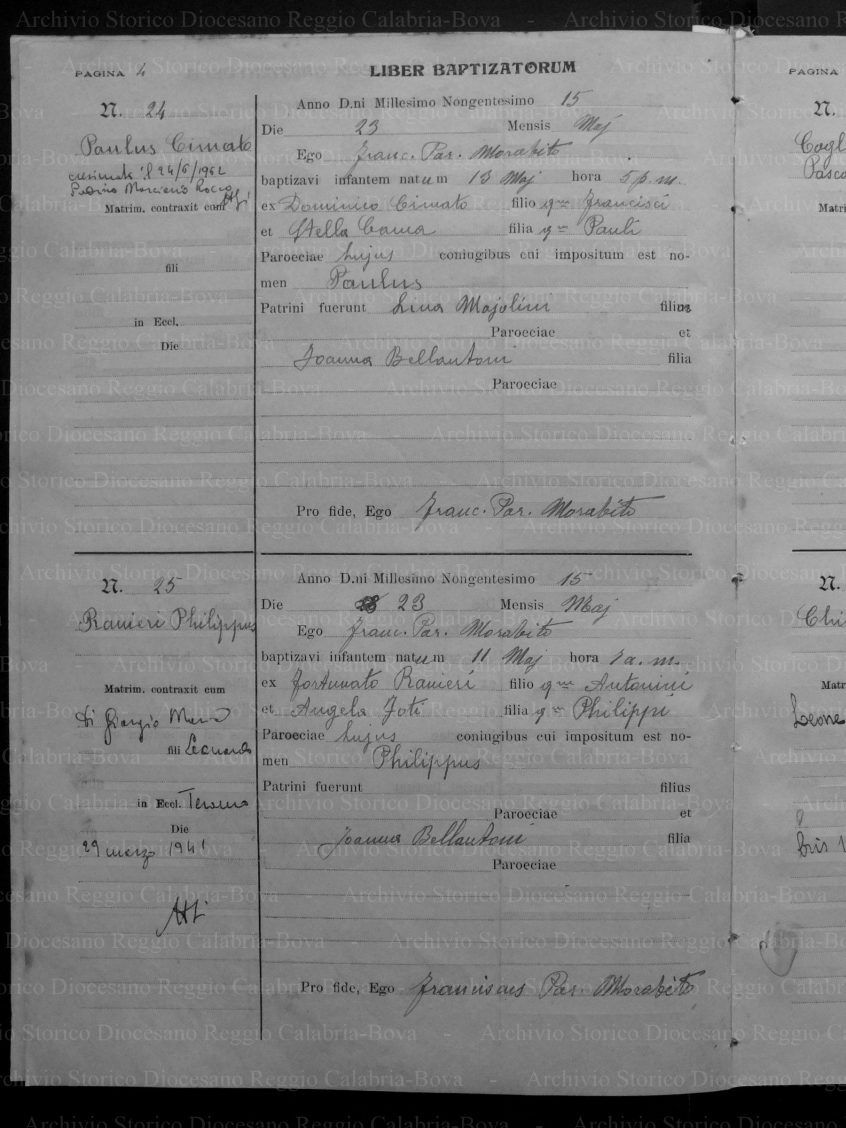 PAGINA 4
LIBER BAPTIZATORUM
N. 24
Paulus Cimato
cresimato il 24/6/1962
Padrino Marciano Rocco
Matrim. contraxit cum
fili
in Eccl.
Die
Anno D.ni Millesimo Nongentesimo 15
Die 23 Mensis Maj
Ego Franc. Par. Morabito
baptizavi infantem natum 13 Maj hora 5 p. m.
ex Dominico Cimato filio qm Francisci
et Stella Cama filia qm Pauli
Paroeciae hujus coniugibus cui impositum est no-
men Paulus
Patrini fuerunt Majolini filius
Paroeciae et
Joanna Bellantoni filia
Paroeciae
Pro fide, Ego Franc. Par. Morabito
N. 25
Ranieri Philippus
Matrim. contraxit cum
Di Giorgio Maria
fili Leonardo
in Eccl.
Die
29 marzo 1941
Anno D.ni Millesimo Nongentesimo 15
Die 23 Mensis Maj
Ego Franc. Par. Morabito
baptizavi infantem natum 11 Maj hora a. m.
ex Fortunato Ranieri filio qm Antonini
et Angela Foti filia qm Philippi
Paroeciae hujus coniugibus cui impositum est no-
men Philippus
Patrini fuerunt filius
Paroeciae et
Joanna Bellantoni filia
Paroeciae
Pro fide, Ego Franciscus Par. Morabito
PAGINA
N.
Cagl
Pasca
Matri
N.
Chi
Matr
Leone
Archivio Storico Diocesano Reggio Calabria-Bova